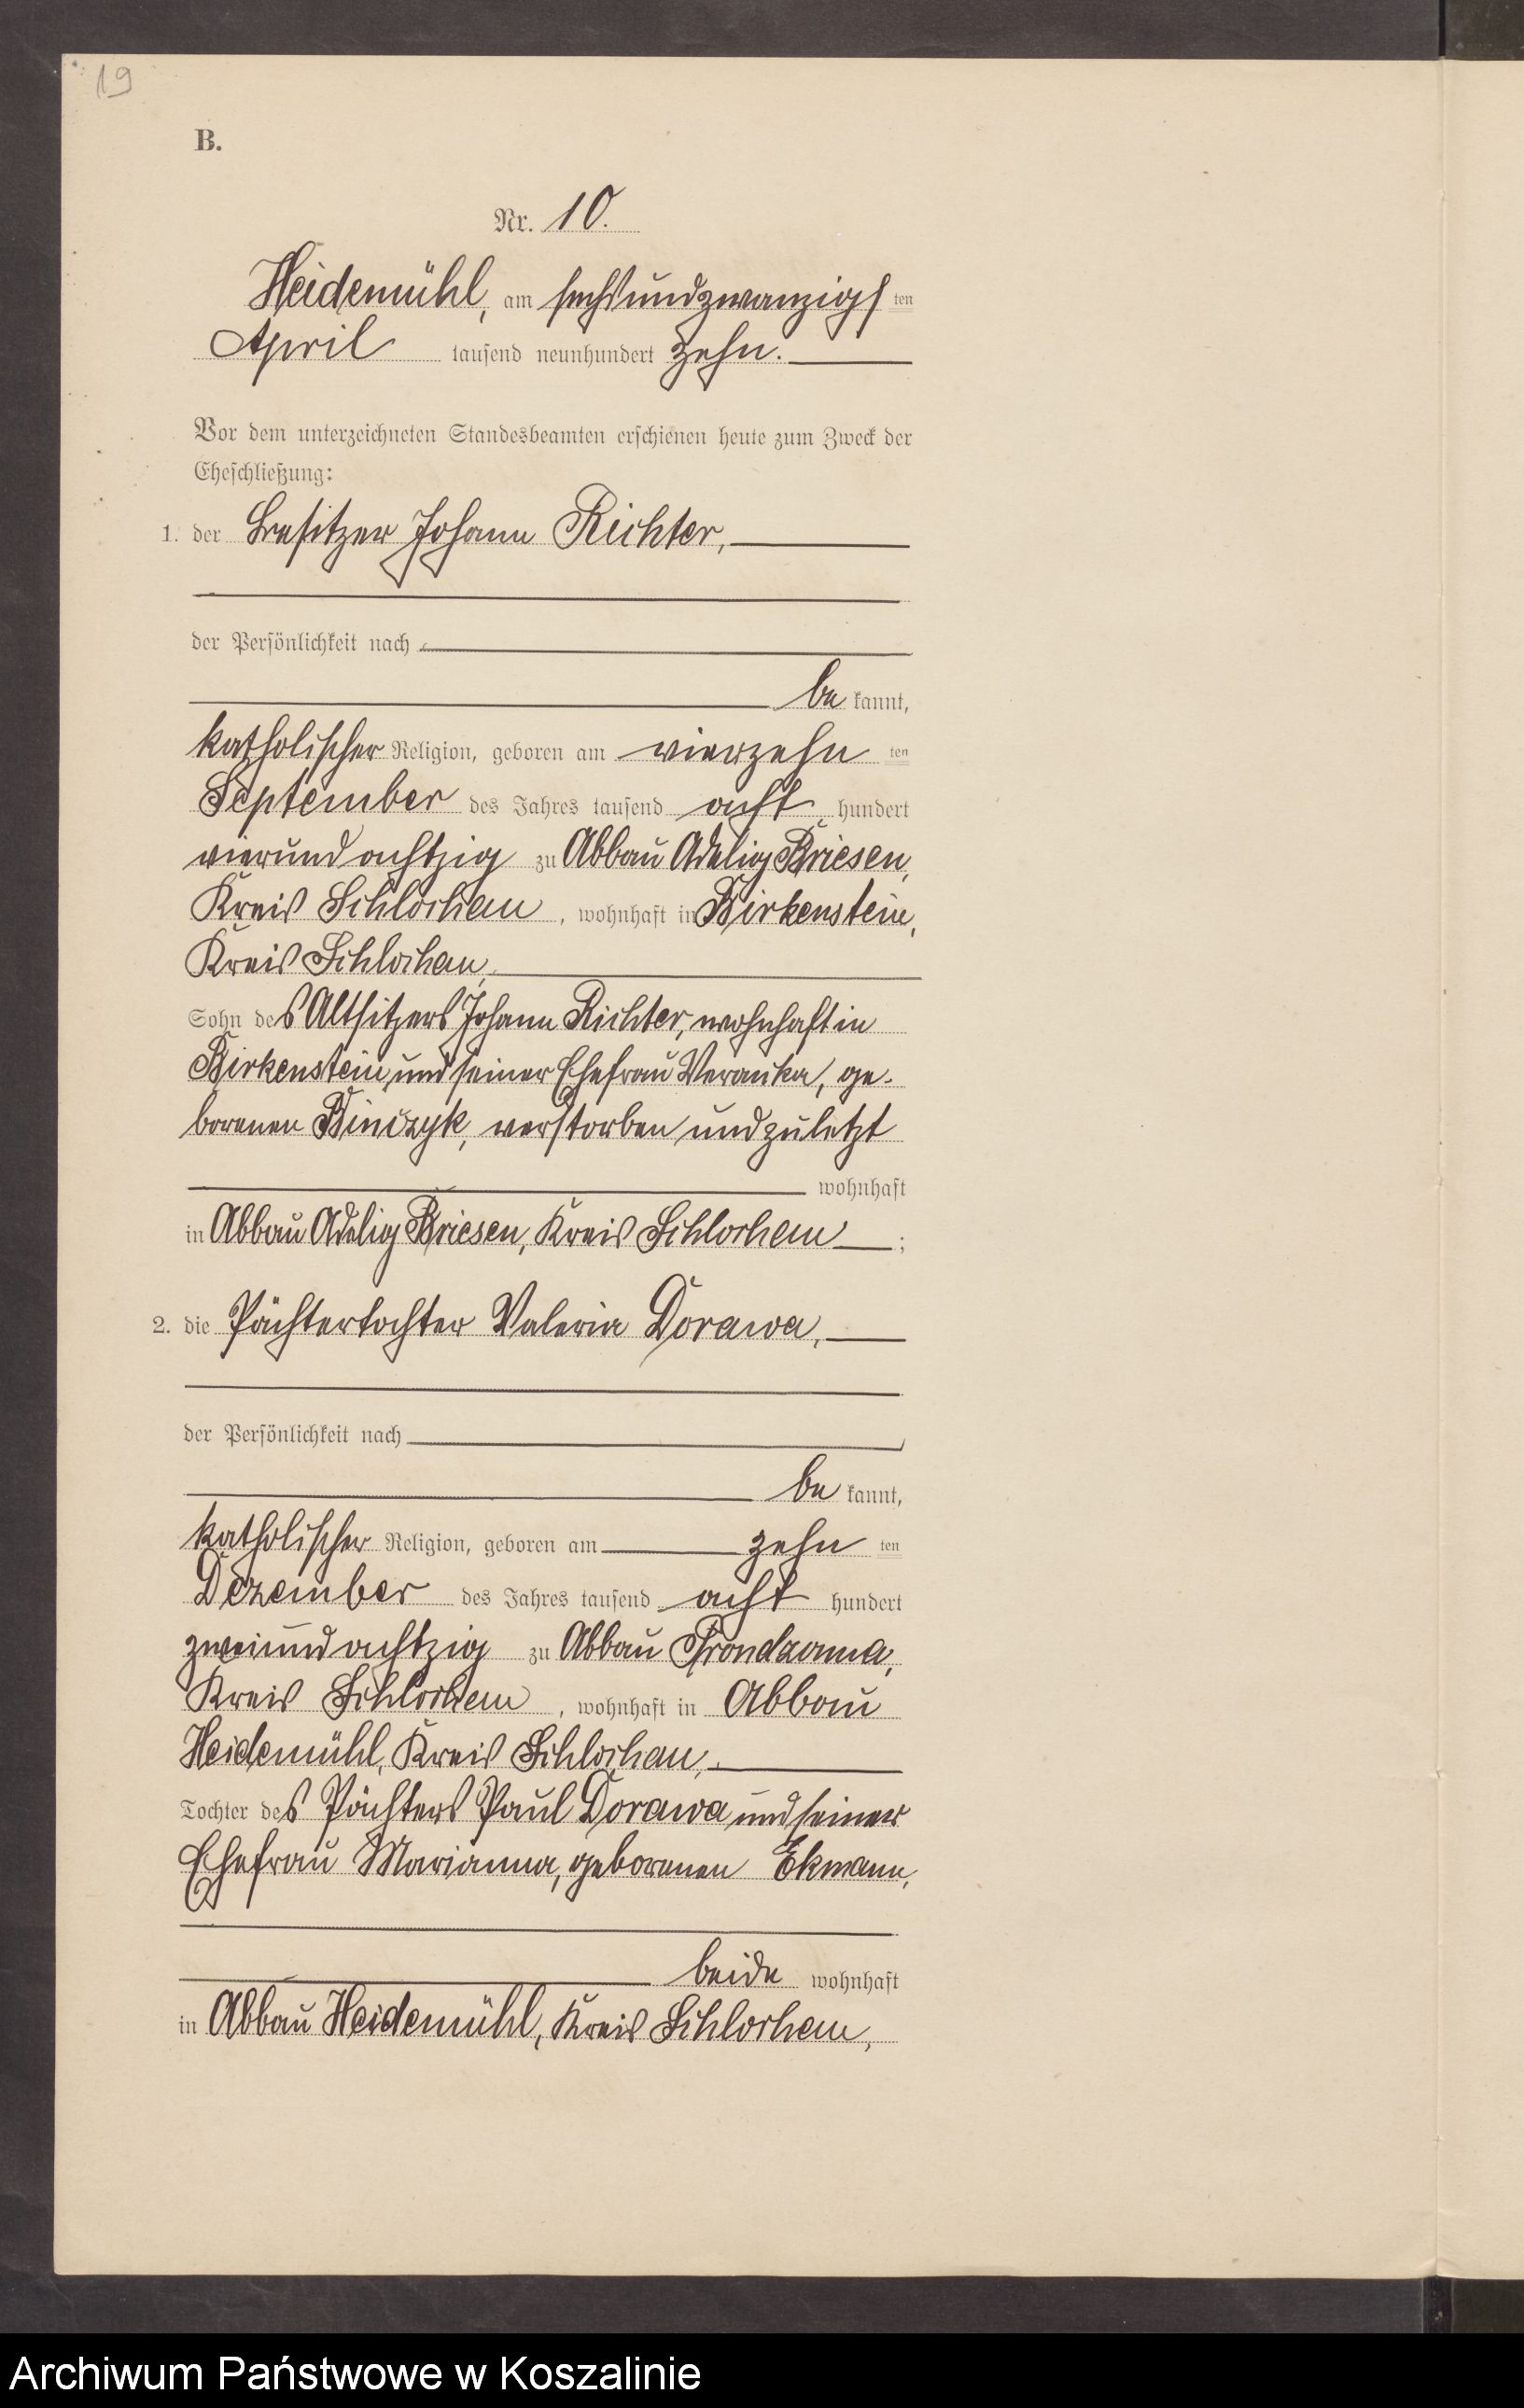 19
B.
Nr. 10.
Heidemühl, am sechsundzwanzigsten
April tausend neunhundert zehn.
Vor dem unterzeichneten Standesbeamten erschienen heute zum Zweck der
Eheschließung:
1. der Besitzer Johann Richter,
der Persönlichkeit nach
bekannt,
katholischer Religion, geboren am vierzehn ten
September des Jahres tausend acht hundert
vierundachtzig zu Abbau Adelig Briesen,
Kreis Schlochau, wohnhaft in Birkenstein,
Kreis Schlochau,
Sohn des Altsitzers Johann Richter, wohnhaft in
Birkenstein und seiner Ehefrau Veranika, ge-
borenen Binczyk, verstorben und zuletzt
wohnhaft
in Abbau Adelig Briesen, Kreis Schlochau;
2. die Pächtertochter Valeria Dorawa,
der Persönlichkeit nach
bekannt,
katholischer Religion, geboren am zehn ten
Dezember des Jahres tausend acht hundert
zweiundachtzig zu Abbau Prondzonna,
Kreis Schlochau, wohnhaft in Abbau
Heidemühl, Kreis Schlochau,
Tochter des Pächters Paul Dorawa und seiner
Ehefrau Marianna, geborenen Ekmann,
beide wohnhaft
in Abbau Heidemühl, Kreis Schlochau,
Archiwum Państwowe w Koszalinie